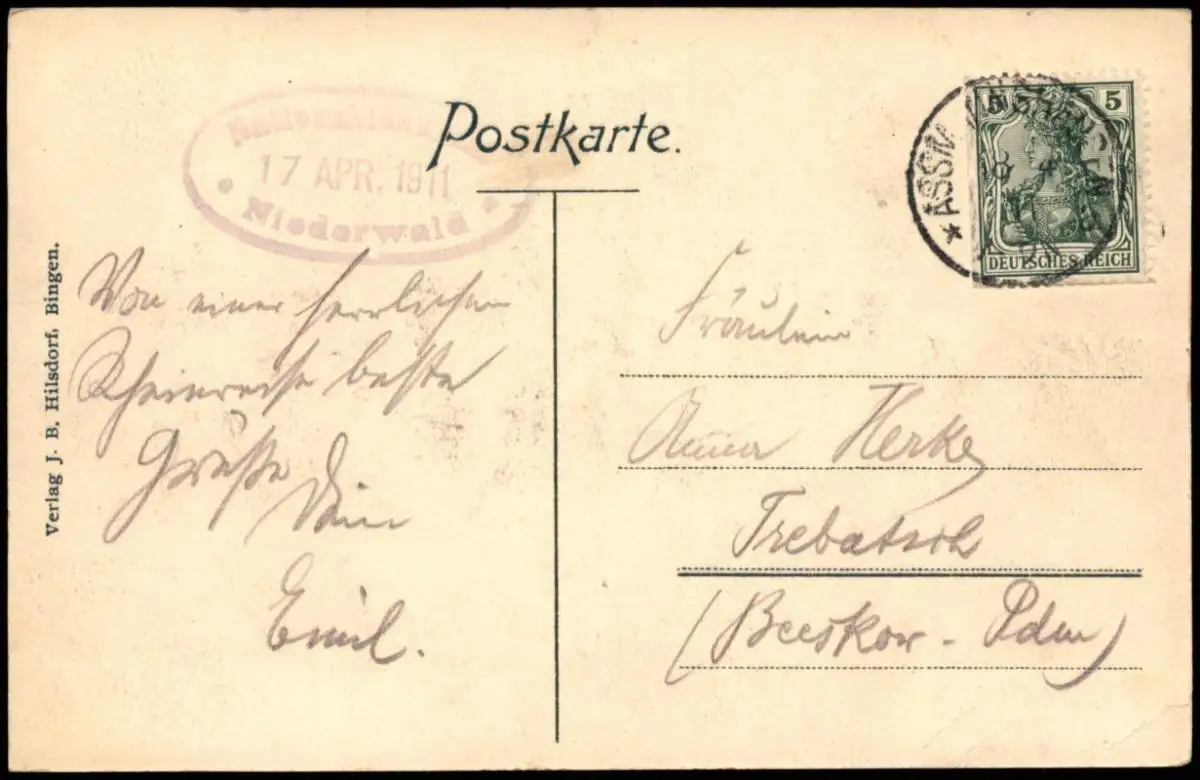 Postkarte.
Nationaldenkmal
17 APR. 1911
Niederwald
5 5
DEUTSCHES REICH
* ASSMANNSHAUSEN
18 4 11
Von einer herrlichen
Rheinreise beste
Grüße Dein
Emil.
Fräulein
Anna Herke
Trebatsch
(Beeskow - Pdm)
Verlag J. B. Hilsdorf, Bingen.